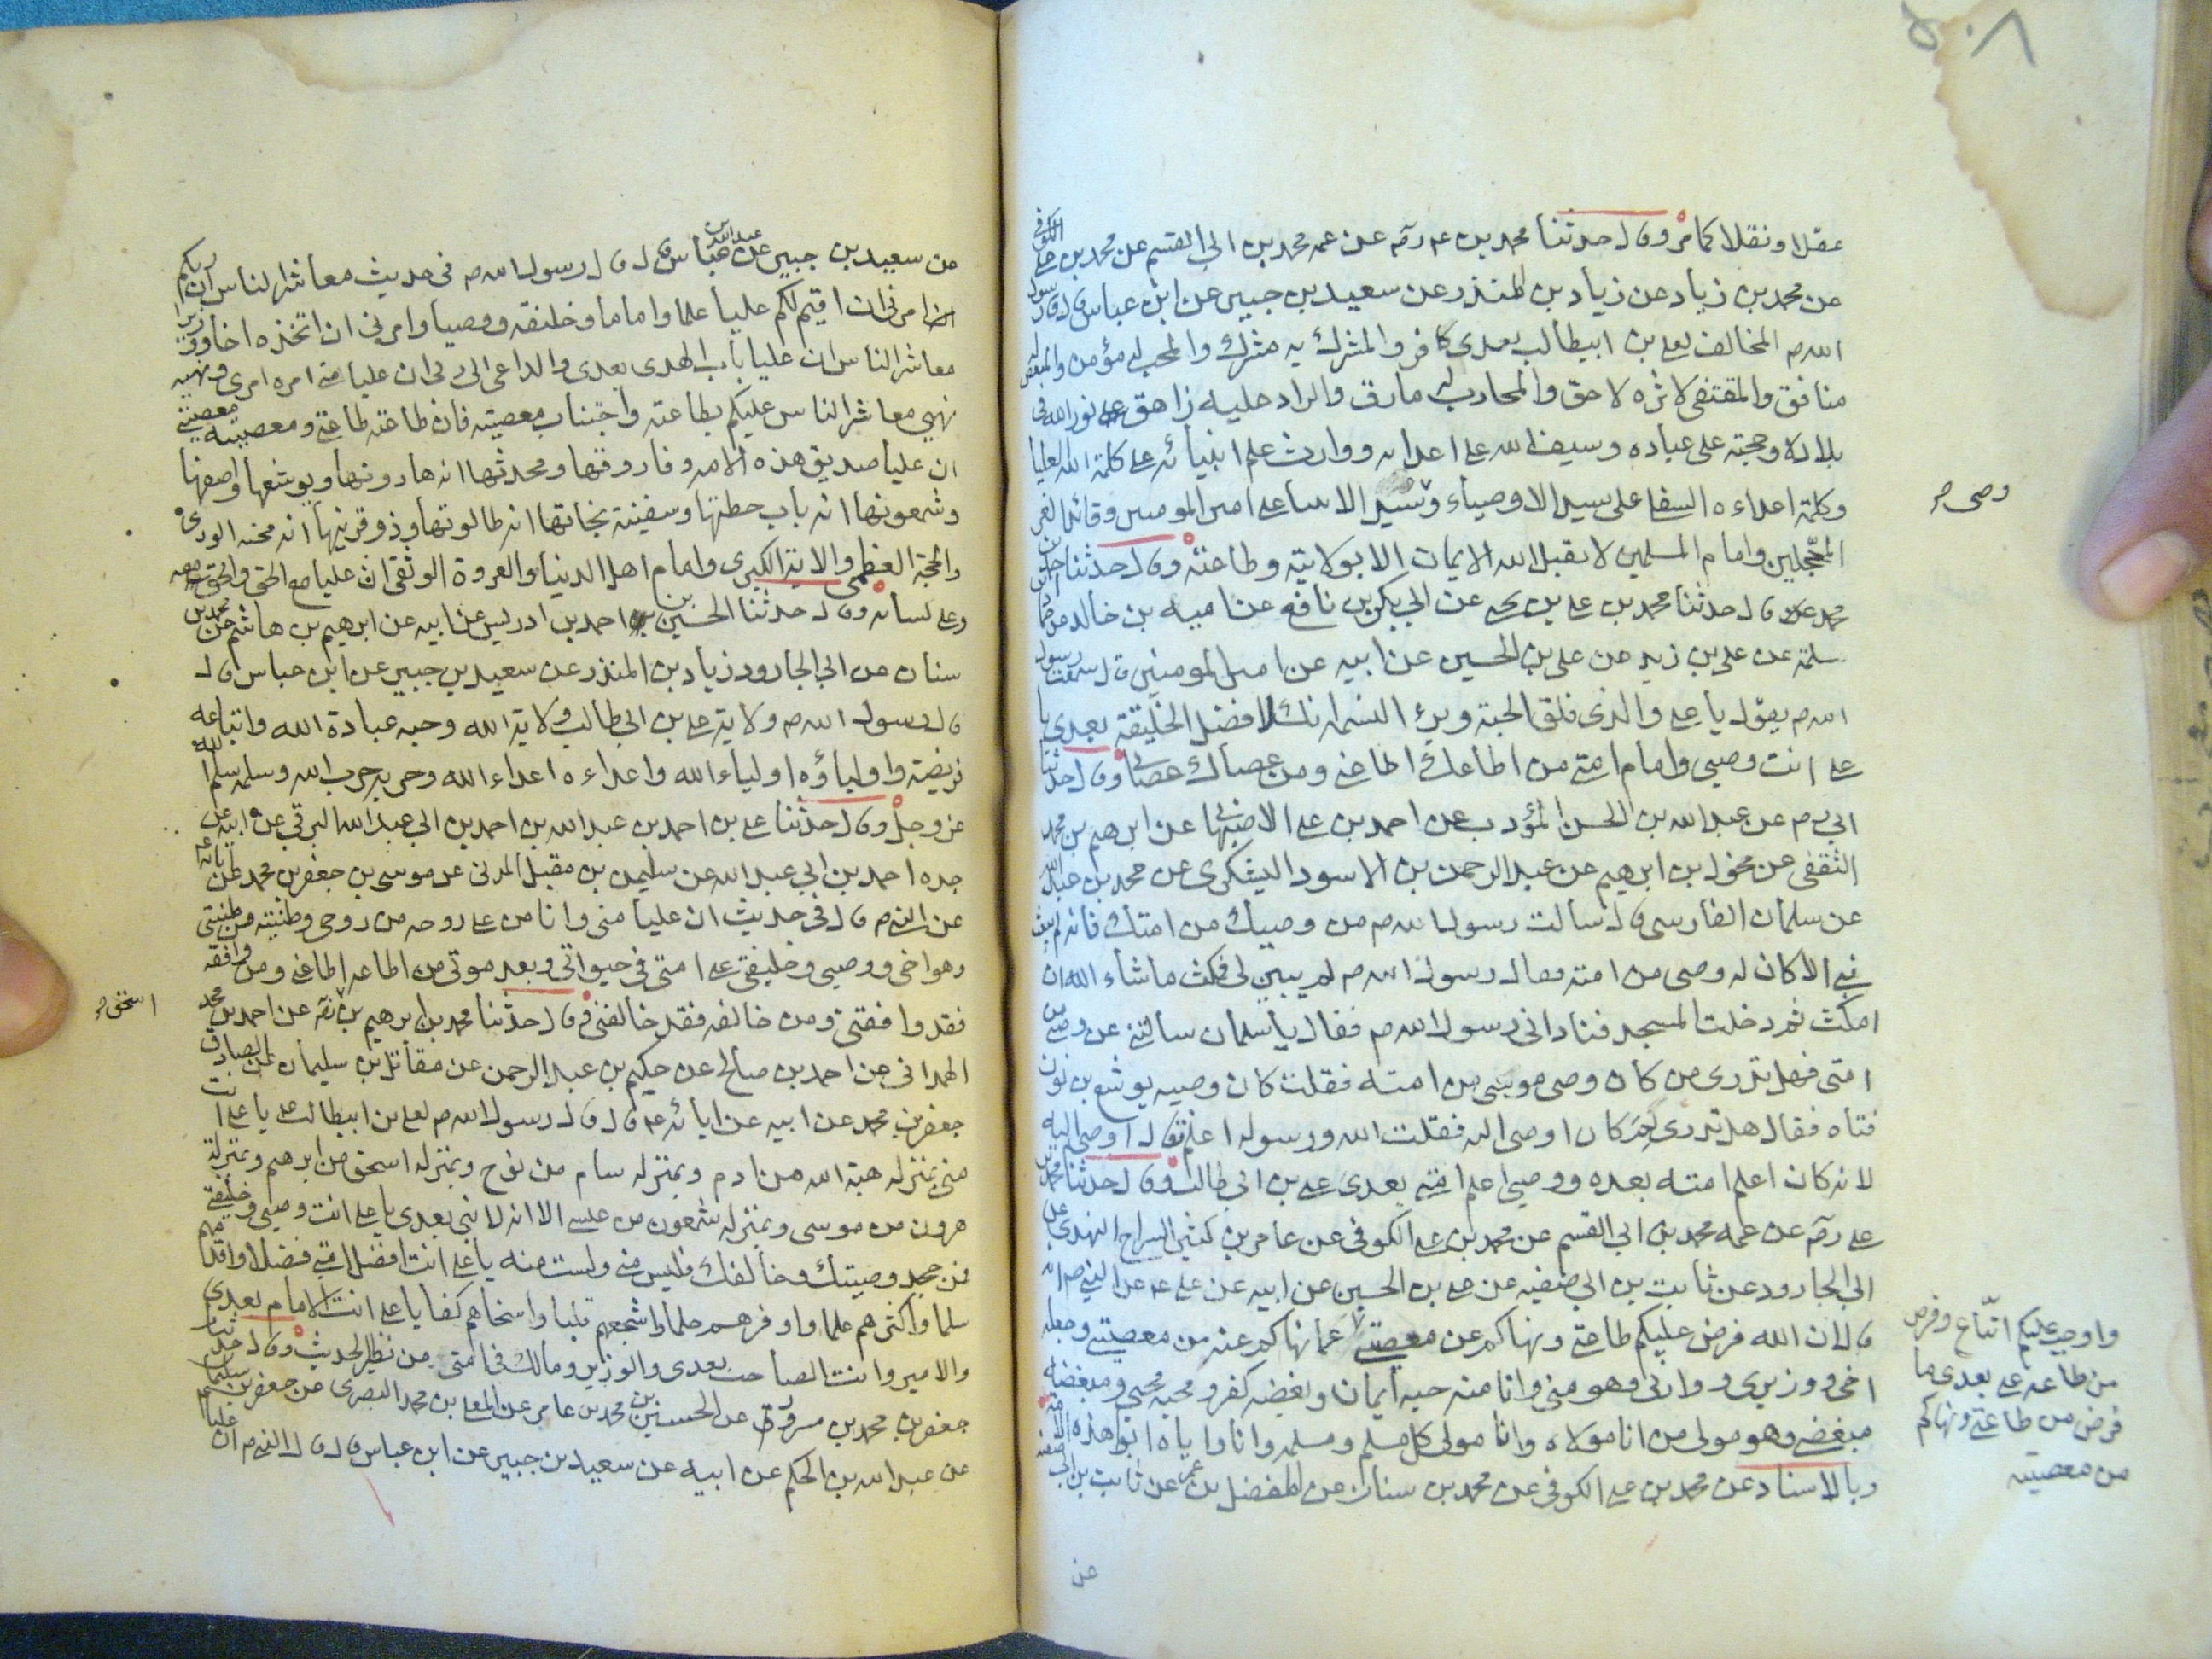 ٥٠٨
عقلا ونقلا كما مر وقال حدثنا محمد بن علي رحمه عن عمه محمد بن ابي القسم عن محمد بن علي الكوفي
عن محمد بن زياد عن زياد بن المنذر عن سعيد بن جبير عن ابن عباس قال قال رسول
الله ص المخالف لعلي بن ابيطالب بعدي كافر والمشرك به مشرك والمحب له مؤمن والمبغض له
منافق والمقتفي لاثره لاحق والمحارب له مارق والراد عليه زاهق علي نور الله في
بلاده وحجته على عباده وسيف الله علي اعدائه ووارث علم انبيائه علي كلمة الله العليا
وكلمة اعداءه السفلى علي سيد الاوصياء ووصي سيد الانبياء علي امير المومنين وقائد الغر
وصي صح
المحجلين وامام المسلمين لا يقبل الله الايمان الا بولايته وطاعته وقال حدثنا احمد بن
محمد قال حدثنا محمد بن علي بن يحيى عن ابي بكر بن نافع عن امية بن خالد عن حماد بن
سلمة عن علي بن زيد عن علي بن الحسين عن ابيه عن امير المومنين قال سمعت رسول
الله ص يقول يا علي والذي فلق الحبة وبرء النسمة انك لافضل الخليقة بعدي يا
علي انت وصيي وامام امتي من اطاعك اطاعني ومن عصاك عصاني وقال حدثنا
ابي رحم عن عبد الله بن الحسن المؤدب عن احمد بن علي الاصبهاني عن ابرهيم بن محمد
الثقفي عن مخول بن ابرهيم عن عبد الرحمن بن الاسود اليشكري عن محمد بن عبيد الله
عن سلمان الفارسي قال سالت رسول الله ص من وصيك من امتك فانه لم يبعث
نبي الا كان له وصي من امته فقال رسول الله ص لم يبين لي فمكثت ما شاء الله ان
امكث ثم دخلت المسجد فناداني رسول الله ص فقال يا سلمان سالتني عن وصيي من
امتي فهل تدري من كان وصي موسى من امته فقلت كان وصيه يوشع بن نون
فتاه فقال هل تدري لم كان اوصى اليه فقلت الله ورسوله اعلم قال اوصى اليه
لانه كان اعلم امته بعده ووصيي اعلم امتي بعدي علي بن ابي طالب وقال حدثنا محمد بن
علي رحمه عن عمه محمد بن ابي القسم عن محمد بن علي الكوفي عن عامر بن كثير السراج النهدي عن
ابي الجارود عن ثابت بن ابي صفيه عن علي بن الحسين عن ابيه عن علي ع عن النبي ص انه
قال ان الله فرض عليكم طاعتي ونهاكم عن معصيتي عما نهاكم عنه من معصيتي وجعله
واوجب عليكم اتباع وفرض
من طاعه علي بعدي ما
فرض من طاعتي ونهاكم
من معصيته
اخي ووزيري ووارثي وهو مني وانا منه حبه ايمان وبغضه كفر ومحبه محبي ومبغضه
مبغضي وهو مولى من انا مولاه وانا مولى كل مسلم ومسلمه وانا واياه ابوا هذه الامه
وبالاسناد عن محمد بن علي الكوفي عن محمد بن سنان عن المفضل بن عمر عن ثابت بن ابي صفيه
عن
عن سعيد بن جبير عن عبد الله بن عباس قال قال رسول الله ص في حديث معاشر الناس ان ربكم
امرني ان اقيم لكم عليا علما واماما وخليفه ووصيا وامرني ان اتخذه اخا ووزيرا
معاشر الناس ان عليا باب الهدى بعدي والداعي الى ربي ان عليا مني امره امري ونهيه
نهيي معاشر الناس عليكم بطاعته واجتناب معصيته فان طاعته طاعتي ومعصيته معصيتي
ان عليا صديق هذه الامه وفاروقها ومحدثها انه هارونها ويوشعها واصفها
وشمعونها انه باب حطتها وسفينة نجاتها انه طالوتها وذو قرنيها انه محنة الورى
والحجة العظمى والاية الكبرى وامام اهل الدنيا والعروة الوثقى ان عليا مع الحق والحق معه
وعلى لسانه وقال حدثنا الحسين بن احمد بن ادريس عن ابيه عن ابرهيم بن هاشم عن محمد بن
سنان عن ابي الجارود زياد بن المنذر عن سعيد بن جبير عن ابن عباس قال
قال رسول الله ص ولاية علي بن ابي طالب ولاية الله وحبه عبادة الله واتباعه
فريضة واولياؤه اولياء الله واعداءه اعداء الله وحربه حرب الله وسلمه سلم الله
عز وجل وقال حدثنا علي بن احمد بن عبد الله بن احمد بن ابي عبد الله البرقي عن ابيه عن
جده احمد بن ابي عبد الله عن سليمن بن مقبل المدني عن موسى بن جعفر بن محمد عن ابائه
عن النبي ص قال في حديث ان عليا مني وانا من علي روحه من روحي وطينته من طينتي
وهو اخي ووصيي وخليفتي علي امتي في حيواتي وبعد موتي من اطاعه اطاعني ومن وافقه
فقد وافقني ومن خالفه فقد خالفني وقال حدثنا محمد بن ابرهيم بن عن احمد بن محمد
اسحق صح
الهمداني عن احمد بن صالح عن حكيم بن عبد الرحمن عن مقاتل بن سليمان عن الصادق
جعفر بن محمد عن ابيه عن ابائه ع قال قال رسول الله ص لعلي بن ابيطالب ع يا علي انت
مني بمنزله هبة الله من ادم وبمنزله سام من نوح وبمنزله اسحق من ابرهيم وبمنزلة
هرون من موسى وبمنزله شمعون من عيسى الا انه لا نبي بعدي يا علي انت وصيي وخليفتي
فمن جحد وصيتك وخالفك فليس مني ولست منه يا علي انت افضل امتي فضلا واقدمهم
سلما واكثرهم علما واوفرهم حلما واشجعهم قلبا واسخاهم كفا يا علي انت الامام بعدي
والامير وانت الصاحب بعدي والوزير ومالك في امتي من نظير الحديث وقال حدثنا
جعفر بن محمد بن مسرور عن الحسين بن محمد بن عامر عن المعلى بن محمد البصري عن جعفر بن سليمان
عن عبد الله بن الحكم عن ابيه عن سعيد بن جبير عن ابن عباس قال قال النبي ص ان عليا